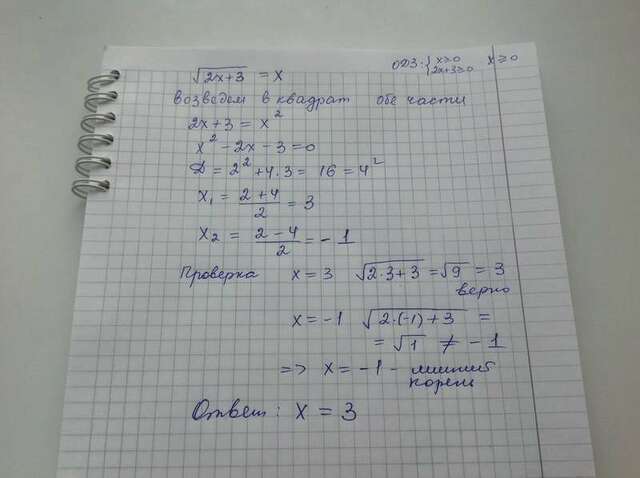 ОДЗ: { x ≥ 0 x ≥ 0
2x+3 ≥ 0
√2x+3 = x
возведем в квадрат обе части
2x+3 = x²
x² - 2x - 3 = 0
D = 2² + 4·3 = 16 = 4²
x₁ = (2+4)/2 = 3
x₂ = (2-4)/2 = -1
Проверка x = 3 √2·3+3 = √9 = 3
верно
x = -1 √2·(-1)+3 =
= √1 ≠ -1
=> x = -1 - лишний
корень
Ответ: x = 3